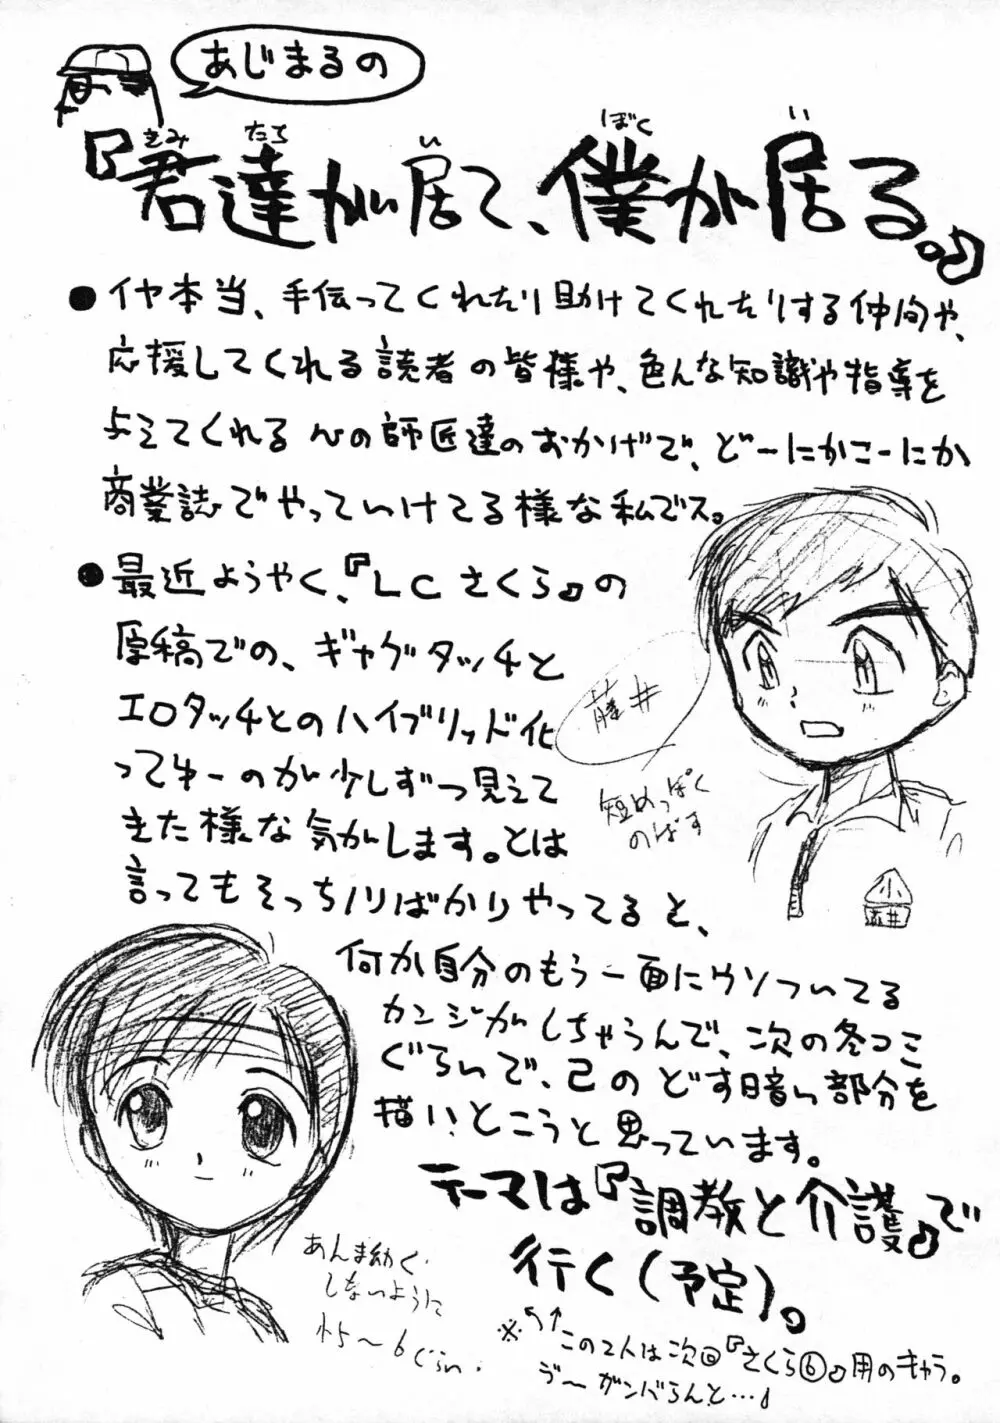 あじまるの
『君達が居て、僕が居る。』
きみ たち い ぼく い
●イヤ本当、手伝ってくれたり助けてくれたりする仲間や、
応援してくれる読者の皆様や、色んな知識や指導を
与えてくれる心の師匠達のおかげで、どーにかこーにか
商業誌でやっていけてる様な私でス。
●最近ようやく、『LCさくら』の
原稿での、ギャグタッチと
エロタッチとのハイブリッド化
ってゆーのが少しずつ見えて
きた様な気がします。とは
言ってもそっちノリばかりやってると、
何か自分のもう一面にウソついてる
カンジがしちゃうんで、次の冬コミ
ぐらいで、己のどす暗い部分を
描いとこうと思っています。
テーマは『調教と介護』で
行く(予定)。
※↖↑この2人は次回『さくら⑥』用のキャラ。
ヴ〜ガンバらんと…♪
藤井
短めっぽく
のばす
小
あんま幼く
しないように
5〜6ぐらい.